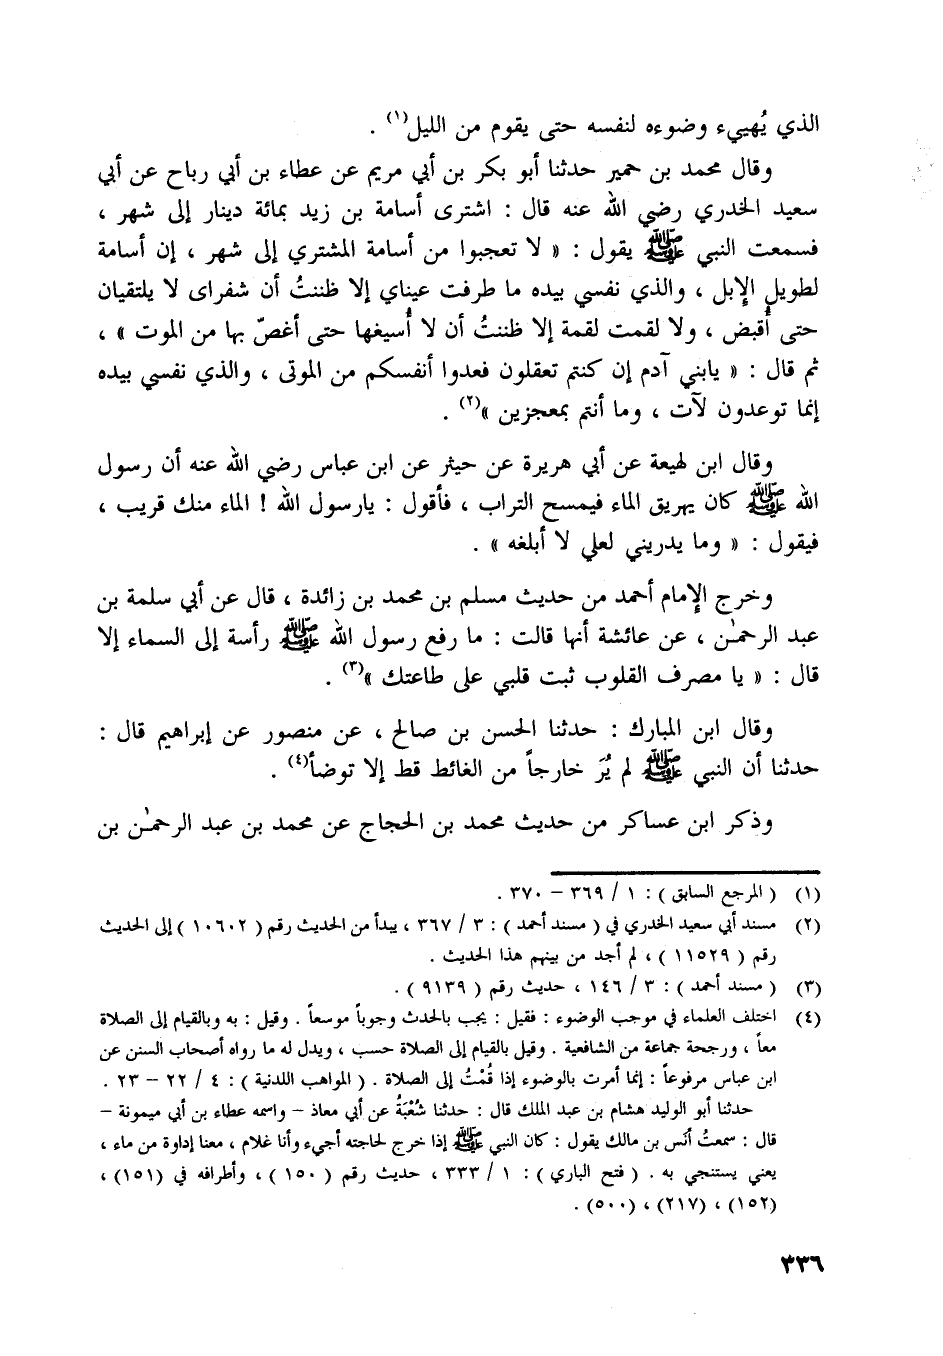 الذي يُهييء وضوءه لنفسه حتى يقوم من الليل(١) .
وقال محمد بن حمير حدثنا أبو بكر بن أبي مريم عن عطاء بن أبي رباح عن أبي
سعيد الخدري رضي الله عنه قال : اشترى أسامة بن زيد بمائة دينار إلى شهر ،
فسمعت النبي ﷺ يقول : « لا تعجبوا من أسامة المشتري إلى شهر ، إن أسامة
لطويل الإبل ، والذي نفسي بيده ما طرفت عيناي إلا ظننتُ أن شفراى لا يلتقيان
حتى أُقبض ، ولا لقمت لقمة إلا ظننتُ أن لا أُسيغها حتى أغصّ بها من الموت » ،
ثم قال : « يابني آدم إن كنتم تعقلون فعدوا أنفسكم من الموتى ، والذي نفسي بيده
إنما توعدون لآت ، وما أنتم بمعجزين »(٢) .
وقال ابن لهيعة عن أبي هريرة عن حيثر عن ابن عباس رضي الله عنه أن رسول
الله ﷺ كان يهريق الماء فيمسح التراب ، فأقول : يارسول الله ! الماء منك قريب ،
فيقول : « وما يدريني لعلي لا أبلغه » .
وخرج الإمام أحمد من حديث مسلم بن محمد بن زائدة ، قال عن أبي سلمة بن
عبد الرحمٰن ، عن عائشة أنها قالت : ما رفع رسول الله ﷺ رأسة إلى السماء إلا
قال : « يا مصرف القلوب ثبت قلبي على طاعتك »(٣) .
وقال ابن المبارك : حدثنا الحسن بن صالح ، عن منصور عن إبراهيم قال :
حدثنا أن النبي ﷺ لم يُرَ خارجاً من الغائط قط إلا توضأ(٤) .
وذكر ابن عساكر من حديث محمد بن الحجاج عن محمد بن عبد الرحمٰن بن
(١) ( المرجع السابق ) : ١ / ٣٦٩ – ٣٧٠ .
(٢) مسند أبي سعيد الخدري في ( مسند أحمد ) : ٣ / ٣٦٧ ، يبدأ من الحديث رقم ( ١٠٦٠٢ ) إلى الحديث
رقم ( ١١٥٢٩ ) ، لم أجد من بينهم هذا الحديث .
(٣) ( مسند أحمد ) : ٣ / ١٤٦ ، حديث رقم ( ٩١٣٩ ) .
(٤) اختلف العلماء في موجب الوضوء : فقيل : يجب بالحدث وجوباً موسعاً . وقيل : به وبالقيام إلى الصلاة
معاً ، ورجحة جماعة من الشافعية . وقيل بالقيام إلى الصلاة حسب ، ويدل له ما رواه أصحاب السنن عن
ابن عباس مرفوعاً : إنما أمرت بالوضوء إذا قُمْتُ إلى الصلاة . ( المواهب اللدنية ) : ٤ / ٢٢ – ٢٣ .
حدثنا أبو الوليد هشام بن عبد الملك قال : حدثنا شُعْبَةُ عن أبي معاذ – واسمه عطاء بن أبي ميمونة –
قال : سمعتُ أنَس بن مالك يقول : كان النبي ﷺ إذا خرج لحاجته أجيء وأنا غلام ، معنا إداوة من ماء ،
يعني يستنجي به . ( فتح الباري ) : ١ / ٣٣٣ ، حديث رقم ( ١٥٠ ) ، وأطرافه في (١٥١) ،
(١٥٢) ، (٢١٧) ، (٥٠٠) .
٣٣٦